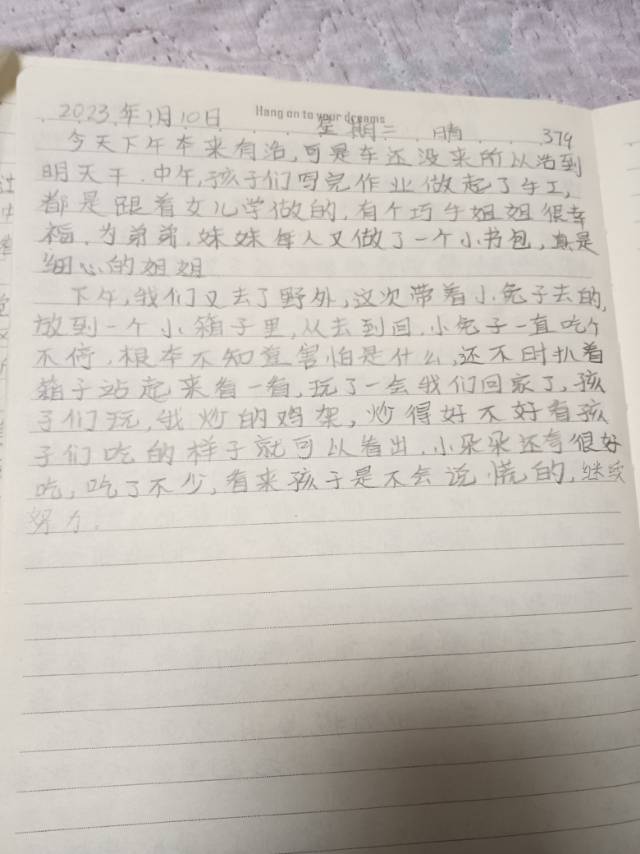 Hang on to your dreams
2023.年1月10日 星期三 晴 379
今天下午本来有活,可是车还没来所以活到
明天干.中午,孩子们写完作业做起了手工,
都是跟着女儿学做的,有个巧手姐姐很幸
福,为弟弟,妹妹每人又做了一个小书包,真是
细心的姐姐
下午,我们又去了野外,这次带着小兔子去的,
放到一个小箱子里,从去到回,小兔子一直吃个
不停,根本不知道害怕是什么,还不时扒着
箱子站起来看一看,玩了一会我们回家了,孩
子们玩,我炒的鸡架,炒得好不好看孩
子们吃的样子就可以看出,小朵朵还夸很好
吃,吃了不少,看来孩子是不会说慌的,继续
努力.